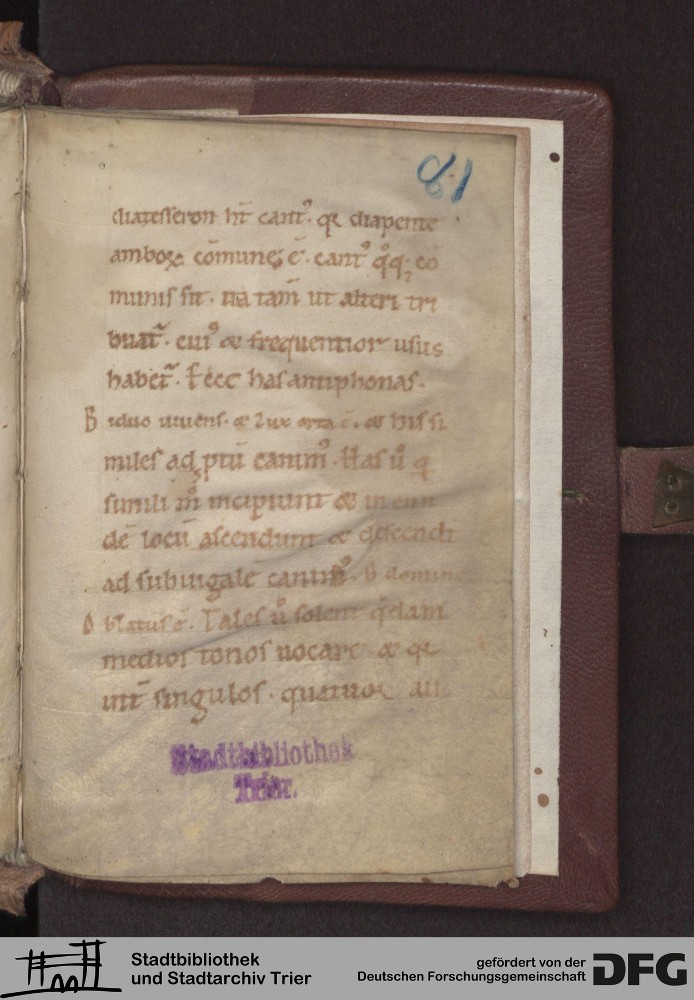 81
diatesseron hr̄t cant᷒. qr diapente
amboꝝ cōmune; ē. cant᷒ qͦq; co
munis sit. ita tam̄ ut alteri tri
buat᷑. cui᷒ & frequentior usus
habet᷑. has antiphonas.
B iduo uiuens. & Lux orta ē. & his si
miles ad ꝓptū canim᷒. Has ů q
simili m̊ incipiunt & in
dē locū ascendunt & descendt
ad subiugalē canim᷒. domin
O blatus ē. Tales ů solent qͥdam
medios tonos uocare & qr
int̄ singulos. quatuor
Stadtbibliothek
Trier.
Stadtbibliothek
und Stadtarchiv Trier
gefördert von der
Deutschen Forschungsgemeinschaft
DFG